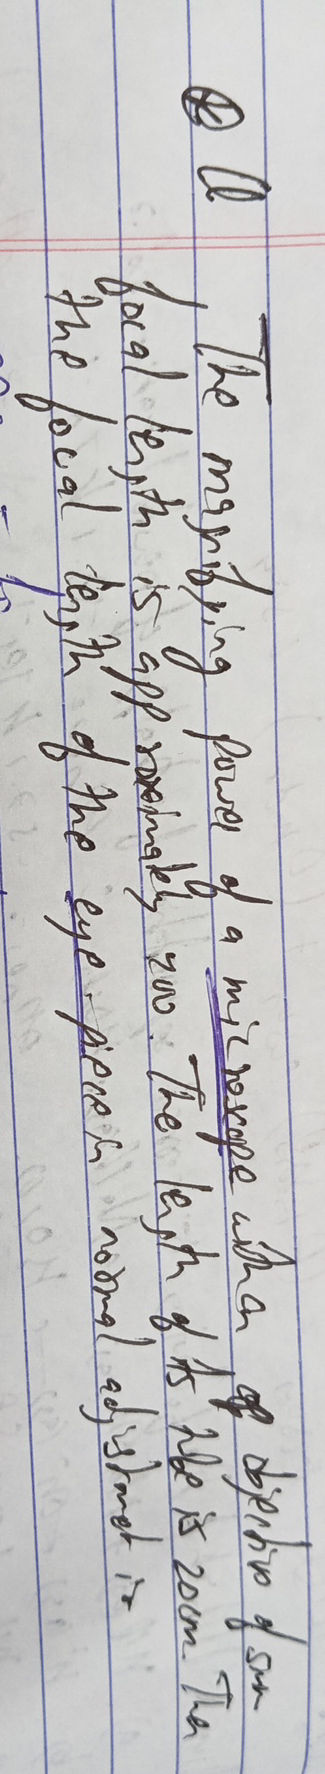 Q
The magnifying power of a microscope with an objective of 5mm
focal length is approximately 400. The length of its tube is 20cm. Then
the focal length of the eye-piece in normal adjustment is